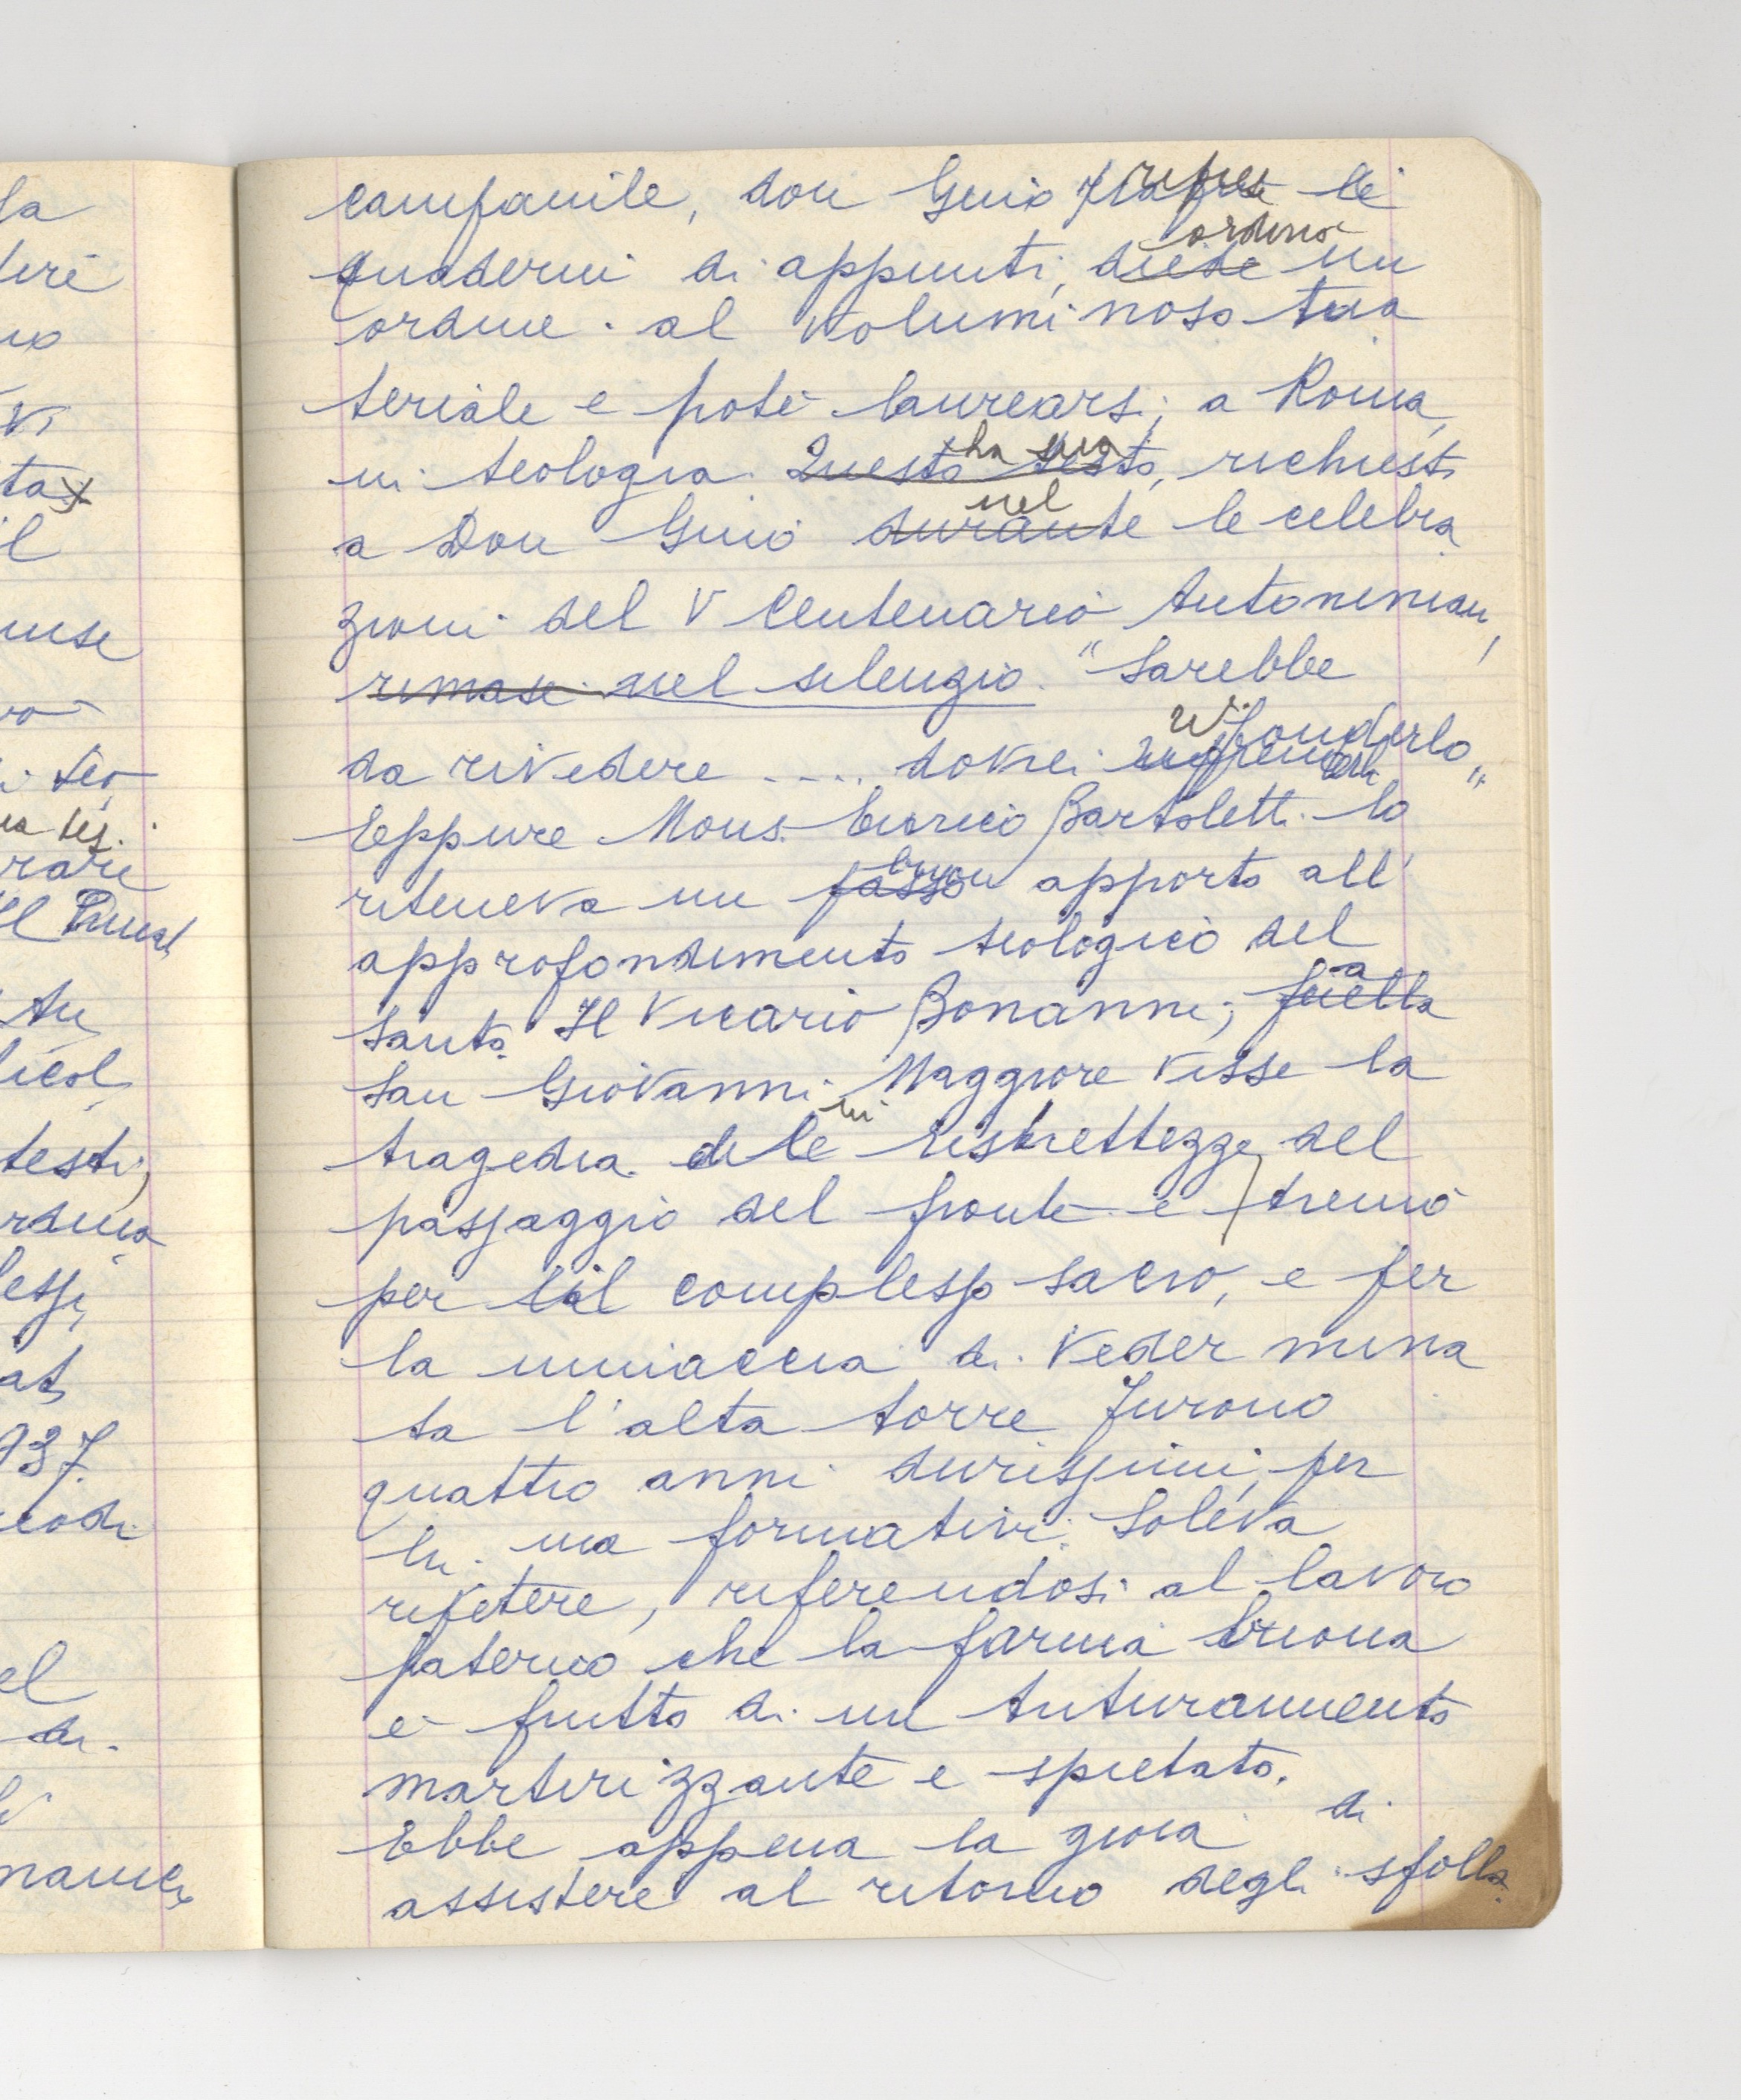 campanile, don Giulio riprese i
quaderni di appunti, diede ordinò un
ordine al voluminoso ma
teriale e poté laurearsi, a Roma,
in teologia. Questo testo, La sua richiest
a Don Giulio durante nel le celebra
zioni del V Centenario Antoninian,
rimase nel silenzio. "Sarebbe
da rivedere .... dovrei rifonderlo"
Eppure Mons. Enrico Bartoletti lo
riteneva un passo buon apporto all'
approfondimento teologico del
Santo. Il Vicario Bonanni, a
San Giovanni Maggiore visse la
tragedia delle in ristrettezze del
passaggio del fronte e tremò
per il complesso sacro, e per
la minaccia di veder mina
ta l'alta torre. Furono
quattro anni durissimi, per
lui ma formativi. Soleva
ripetere, riferendosi al lavoro
paterno che la farina buona
è frutto di un trituramento
martirizzante e spietato.
Ebbe appena la gioia di
assistere al ritorno degli sfolla
la
no
vi
ta
il
testi,
937.
el
di